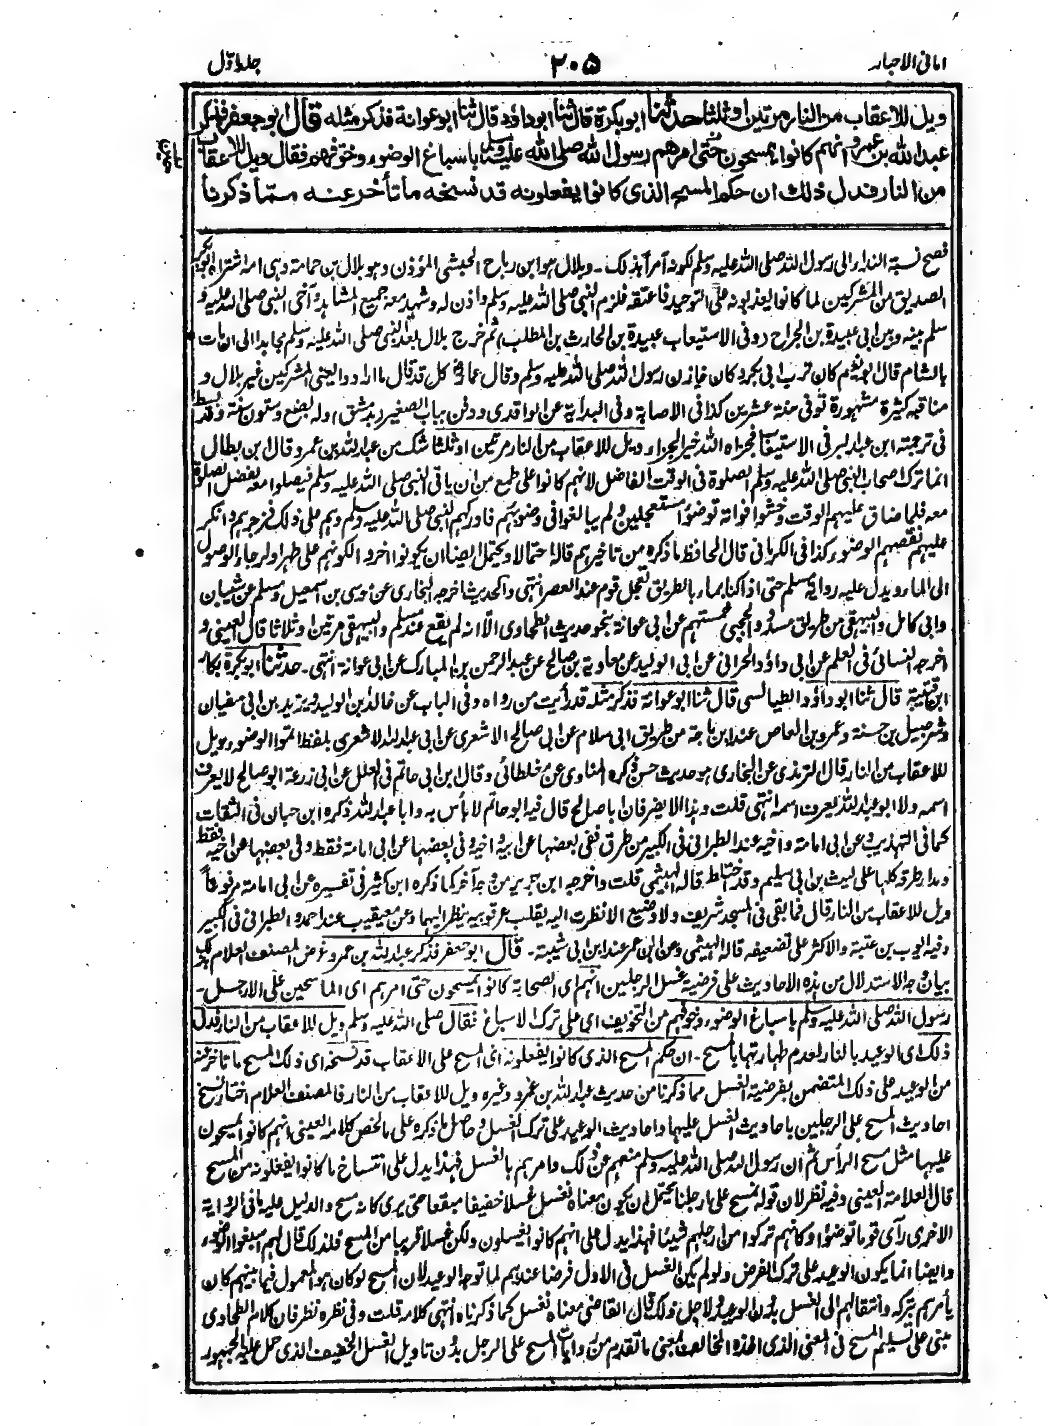 امانی الاحبار
۲۰۵
جلد اول
ویل للاعقاب من النار مرتین او ثلثا حدثنا ابو بکرة قال ثنا ابو داؤد قال ثنا ابو عوانة فذکر مثله قال ابو جعفر فذکر
عبد الله بن عمرو انهم کانوا یمسحون حتی امرهم رسول الله صلی الله علیه وسلم باسباغ الوضوء وخوفهم فقال ویل للاعقاب
من النار فدل ذلك ان حکم المسح الذی کانوا یفعلونه قد نسخه ما تأخر عنه مما ذکرنا
فصح نسبة النداء الی رسول الله صلی الله علیه وسلم لکونه آمرا بذلک ۔ وبلال هو ابن رباح الحبشی المؤذن وهو بلال بن حمامة وهی امه اشتراه ابو بکر
الصدیق من المشرکین لما کانوا یعذبونه علی التوحید فاعتقه فلزم النبی صلی الله علیه وسلم واذن له وشهد معه جمیع المشاهد وآخی النبی صلی الله علیه و
سلم بینه وبین ابی عبیدة بن الجراح وفی الاستیعاب عبیدة بن الحارث بن المطلب ثم خرج بلال بعد النبی صلی الله علیه وسلم مجاهدا الی ان مات
بالشام قال ابو نعیم کان ترب ابی بکر وکان خازن رسول الله صلی الله علیه وسلم وقال عمار کل قد قال ما ارادوا یعنی المشرکین غیر بلال و
مناقبه کثیرة مشهورة توفی سنة عشرین کذا فی الاصابة وفی البدایة عن الواقدی ودفن بباب الصغیر (بدمشق) وله بضع وستون سنة وقد بسط
فی ترجمته ابن عبد البر فی الاستیعاب فجزاه الله خیر الجزاء ویل للاعقاب من النار مرتین او ثلثا شک من عبد الله بن عمرو قال ابن بطال
انما ترک اصحاب النبی صلی الله علیه وسلم الصلوة فی الوقت الفاضل لانهم کانوا علی طمع من ان یاتی النبی صلی الله علیه وسلم فیصلوا معه لفضل الصلوة
معه فلما ضاق علیهم الوقت وخشوا فواته توضؤا مستعجلین ولم یبالغوا فی وضوءهم فادرکهم النبی صلی الله علیه وسلم وهم علی ذلک فزجرهم وانکر
علیهم نقصهم الوضوء کذا فی الکرمانی قال الحافظ ما ذکره من تاخیرهم قاله احتمالا ویحتمل ایضا ان یکونوا اخروا لکونهم علی طهر او لرجاء الوصول
الی الماء ویدل علیه روایة مسلم حتی اذا کنا بماء بالطریق تعجل قوم عند العصر انتهی والحدیث اخرجه البخاری عن موسی بن اسمعیل ومسلم عن شیبان
وابی کامل والبیهقی من طریق مسدد والحجبی خمستهم عن ابی عوانة بنحو حدیث الطحاوی الا انه لم یقع عند مسلم والبیهقی مرتین او ثلاثا قال العینی و
اخرجه النسائی فی العلم عن ابی داؤد الحرانی عن ابی الولید عن معاویة بن صالح عن عبد الرحمن بن المبارک عن ابی عوانة انتهی ۔ حدثنا ابو بکرة بکار
ابن قتیبة قال ثنا ابو داؤد الطیالسی قال ثنا ابو عوانة فذکر مثله قد رأیت من رواه وفی الباب عن خالد بن الولید ویزید بن ابی سفیان
وشرحبیل بن حسنة وعمرو بن العاص عند ابن ماجة من طریق ابی سلام عن ابی صالح الاشعری عن ابی عبد الله الاشعری بلفظ اتموا الوضوء ویل
للاعقاب من النار قال الترمذی عن البخاری هو حدیث حسن ذکره المناوی عن مغلطائی وقال ابن ابی حاتم فی العلل عن ابی زرعة ابو صالح لا یعرف
اسمه ولا ابو عبد الله یعرف اسمه انتهی قلت وهذا لا یضر فان ابا صالح قال فیه ابو حاتم لا بأس به وابا عبد الله ذکره ابن حبان فی الثقات
کما فی التهذیب وعن ابی امامة واخیه عند الطبرانی فی الکبیر من طرق ففی بعضها عن ابی امامة واخیه وفی بعضها عن ابی امامة فقط وفی بعضها عن اخیه فقط
ومدار طرقه کلها علی لیث بن ابی سلیم وقد اختلط قاله الهیثمی قلت واخرجه ابن جریر من وجه آخر کما ذکره ابن کثیر فی تفسیره عن ابی امامة مرفوعا
ویل للاعقاب من النار قال فما بقی فی المسجد شریف ولا وضیع الا نظرت الیه یقلب عرقوبیه ینظر الیهما وعن معیقیب عند احمد والطبرانی فی الکبیر
وفیه ایوب بن عتبة والاکثر علی تضعیفه قاله الهیثمی وعن ابن عمر عند ابن ابی شیبة ۔ قال ابو جعفر فذکر عبد الله بن عمرو غرض المصنف العلام بذلک
بیان وجه الاستدلال من هذه الاحادیث علی فرضیة غسل الرجلین انهم ای الصحابة کانوا یمسحون حتی امرهم ای الماسحین علی الارجل ۔
رسول الله صلی الله علیه وسلم باسباغ الوضوء وخوفهم من التخویف ای علی ترک الاسباغ فقال صلی الله علیه وسلم ویل للاعقاب من النار فدل
ذلک ای الوعید بالنار لعدم طهارتها بالمسح ۔ ان حکم المسح الذی کانوا یفعلونه ای المسح علی الاعقاب قد نسخه ای ذلک المسح ما تاخر عنه
من الوعید علی ذلک المتضمن بفرضیة الغسل مما ذکرنا من حدیث عبد الله بن عمرو وغیره ویل للاعقاب من النار فالمصنف العلام اختار نسخ
احادیث المسح علی الرجلین باحادیث الغسل علیها واحادیث الوعید علی ترک الغسل وحاصل ما ذکره علی ما لخص کلامه العینی انهم کانوا یمسحون
علیها مثل مسح الرأس ثم ان رسول الله صلی الله علیه وسلم منعهم عن ذلک وامرهم بالغسل فهذا یدل علی انتساخ ما کانوا یفعلونه من المسح
قال العلامة العینی وفیه نظر لان قوله نمسح علی ارجلنا یحتمل ان یکون معناه نغسل غسلا خفیفا مبقعا حتی یری کانه مسح والدلیل علیه ما فی الروایة
الاخری رأی قوما توضؤا وکانهم ترکوا من ارجلهم شیئا فهذا یدل علی انهم کانوا یغسلون ولکن غسلا قریبا من المسح فلذلک قال لهم اسبغوا الوضوء
وایضا انما یکون الوعید علی ترک الفرض ولو لم یکن الغسل فی الاول فرضا عندهم لما توجه الوعید لان المسح لو کان هو المعمول فیما بینهم کان
یأمرهم بترکه وانتقالهم الی الغسل بدون الوعید ولاجل ذلک قال القاضی معناه نغسل کما ذکرناه انتهی کلامه قلت وفی نظره نظر فان کلام الطحاوی
مبنی علی تسلیم المسح فی المعنی الذی اخذه المخالف بمعنی ما تقدم من روایات المسح علی الرجل بدون تاویل الغسل الخفیف الذی حمل علیه الجمهور